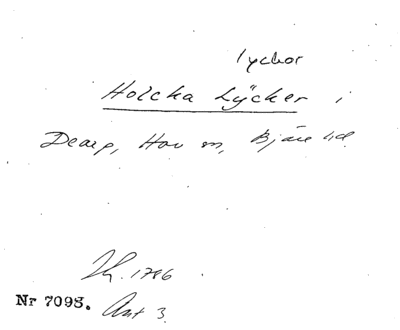 lyckor
Holcka Lÿcker i
Dearp, Hov sn, Bjäre hd.
Lh. 1786.
Nr 7098. Ant 3